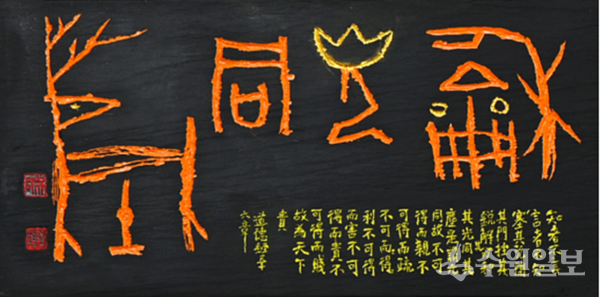 龢光同塵
知者不
言者不知
塞其兌
其門挫其
銳解其
其光同其
塵是謂玄
同故不可
得而親不
可得而疏
不可而得
利不可得
而害不可
得而貴不
可得而賤
故為天下
貴
道德經五十
六章
수원일보